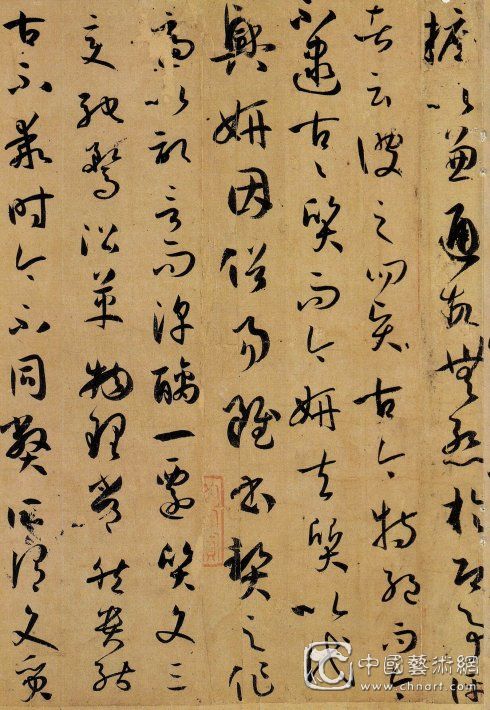 摭以兼通故無慙於即事評
者云彼之四賢古今特絕而今
不逮古〻質而今妍夫質以代
興妍因俗易雖書契之作
適以記言而淳醨一遷質文三
變馳騖沿革物理常然貴能
古不乖時今不同弊所謂文質
中國藝術網
www.chnart.com